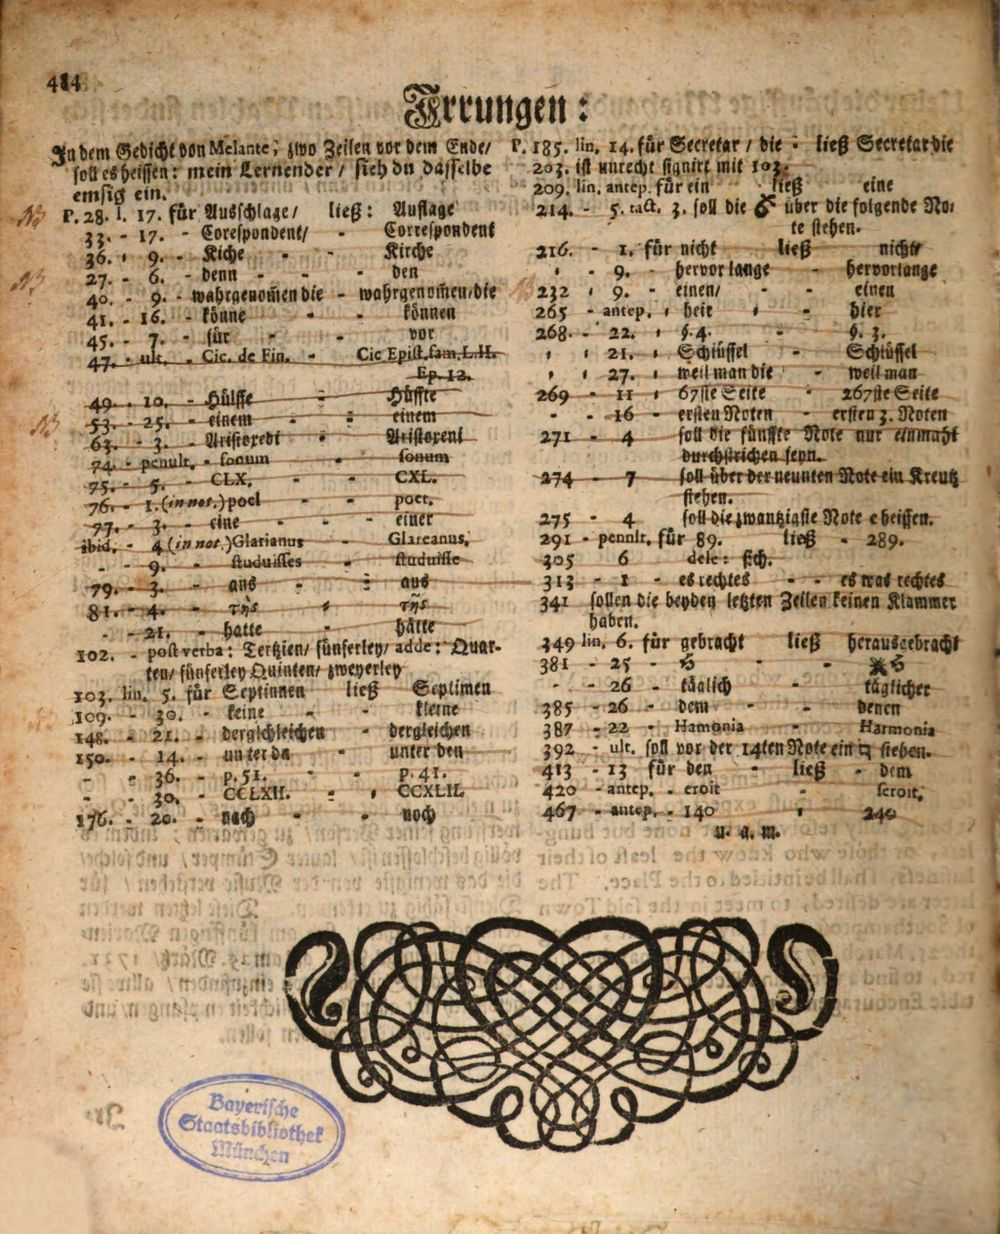 484
Irrungen:
In dem Gedicht von Melante, zwo Zeilen vor dem Ende/
soll es heissen: mein Lernender / sieh du dasselbe
emsig ein.
P. 28. l. 17. für Ausschlage/ ließ: Auflage
33. - 17. - Corespondent/ - Correspondent
36. - 9. - Kiche - Kirche
27. - 6. - denn - - den
40. - 9. - wahrgenom̄en die - wahrgenom̄en/die
41. - 16. - könne - können
45. - 7. - für - vor
47. - ult. - Cic. de Fin. - Cic Epist. fam. L. II.
Ep. 12.
49. - 10. - Hülffe - Hüffte
53. - 25. - einem - einem
63. - 3. - Aristoxedi - Aristoxeni
74. - penult. - sonum - sonum
75. - 5. - CLX. - CXL.
76. - 1. (in not.) poel - poet.
77. - 3. - eine - - einer
ibid. - 4 (in not.) Glarianus - Glareanus.
- - 9. - studuisses - studuisse
79. - 3. - ans - aus
81. - 4. - τὴς - τῆς
- - 21. - hatte - hätte
102. - post verba: Tertzien/ fünferley/ adde: Quar-
ten/ fünferley Quinten/ zweyerley
103. lin. 5. für Septinnen ließ Septimen
109. - 30. - keine - - kleine
148. - 21. - dergichleichen - dergleichen
150. - 14. - un ter da - unter den
- - 36. - p. 51. - - p. 41.
- - 30. - CCLXII. - CCXLII.
176. - 20. - nach - - noch
P. 185. lin. 14. für Secretar / die - ließ Secretar die
203. ist unrecht signirt mit 103.
209. lin. antep. für ein ließ eine
214. - 5. tact. 3. soll die über die folgende No-
te stehen.
216. - 1. für nicht ließ nichts
- - 9. - hervor lange - hervorlange
232 - 9. - einen/ - - einen
265 - antep. - heit - - hier
268. - 22. - §. 4. - §. 3.
- - 21. - Schlüffel - Schlüssel
- - 27. - weil man die - weil man
269 - 11 - 67ste Seite - 267ste Seite
- - 16 - ersten Noten - ersten 3. Noten
271 - 4 soll die fünffte Note nur einmahl
durchstrichen seyn.
274 - 7 soll über der neunten Note ein Kreutz
stehen.
275 - 4 soll die zwantzigste Note e heissen.
291 - penult. für 89. ließ - 289.
305 6 dele: sich.
313 - 1 - es rechtes - - es was rechtes
341 sollen die beyden letzten Zeilen keinen Klammer
haben.
349 lin. 6. für gebracht ließ herausgebracht
381 - 25 -
- - 26 - täglich - täglicher
385 - 26 - dem - - denen
387 - 22 - Hamonia - Harmonia
392 - ult. soll vor der 14ten Note ein ♮ stehen.
413 - 13 für den - ließ - dem
420 - antep. - eroit - seroit.
467 - antep. - 140 - 240
u. a. m.
Bayerische
Staatsbibliothek
München